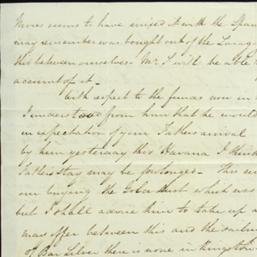 seems to have mixed it with the Span
may remember was bought out of the
this between ourselves. Mr. I will be able t
account of it.
With respect to the funds now in
I understood from him that he would
in expectation of your Fathers arrival
by him yesterday this Havana I think
Fathers stay may be prolonged. This
on buying the which was
but I shall advise him to take up a
may offer between this and the sailin
of Bar Silver there is none in Kingston